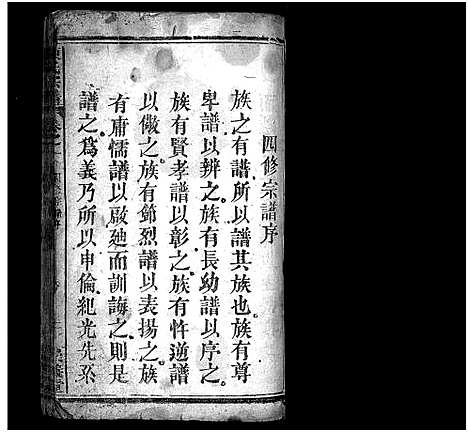 四修宗譜序
族之有譜所以譜其族也族有尊
卑譜以辨之族有長幼譜以序之
族有賢孝譜以彰之族有忤逆譜
以儆之族有節烈譜以表揚之族
有庸懦譜以啟廸而訓誨之則是
譜之爲義乃所以申倫紀光先系